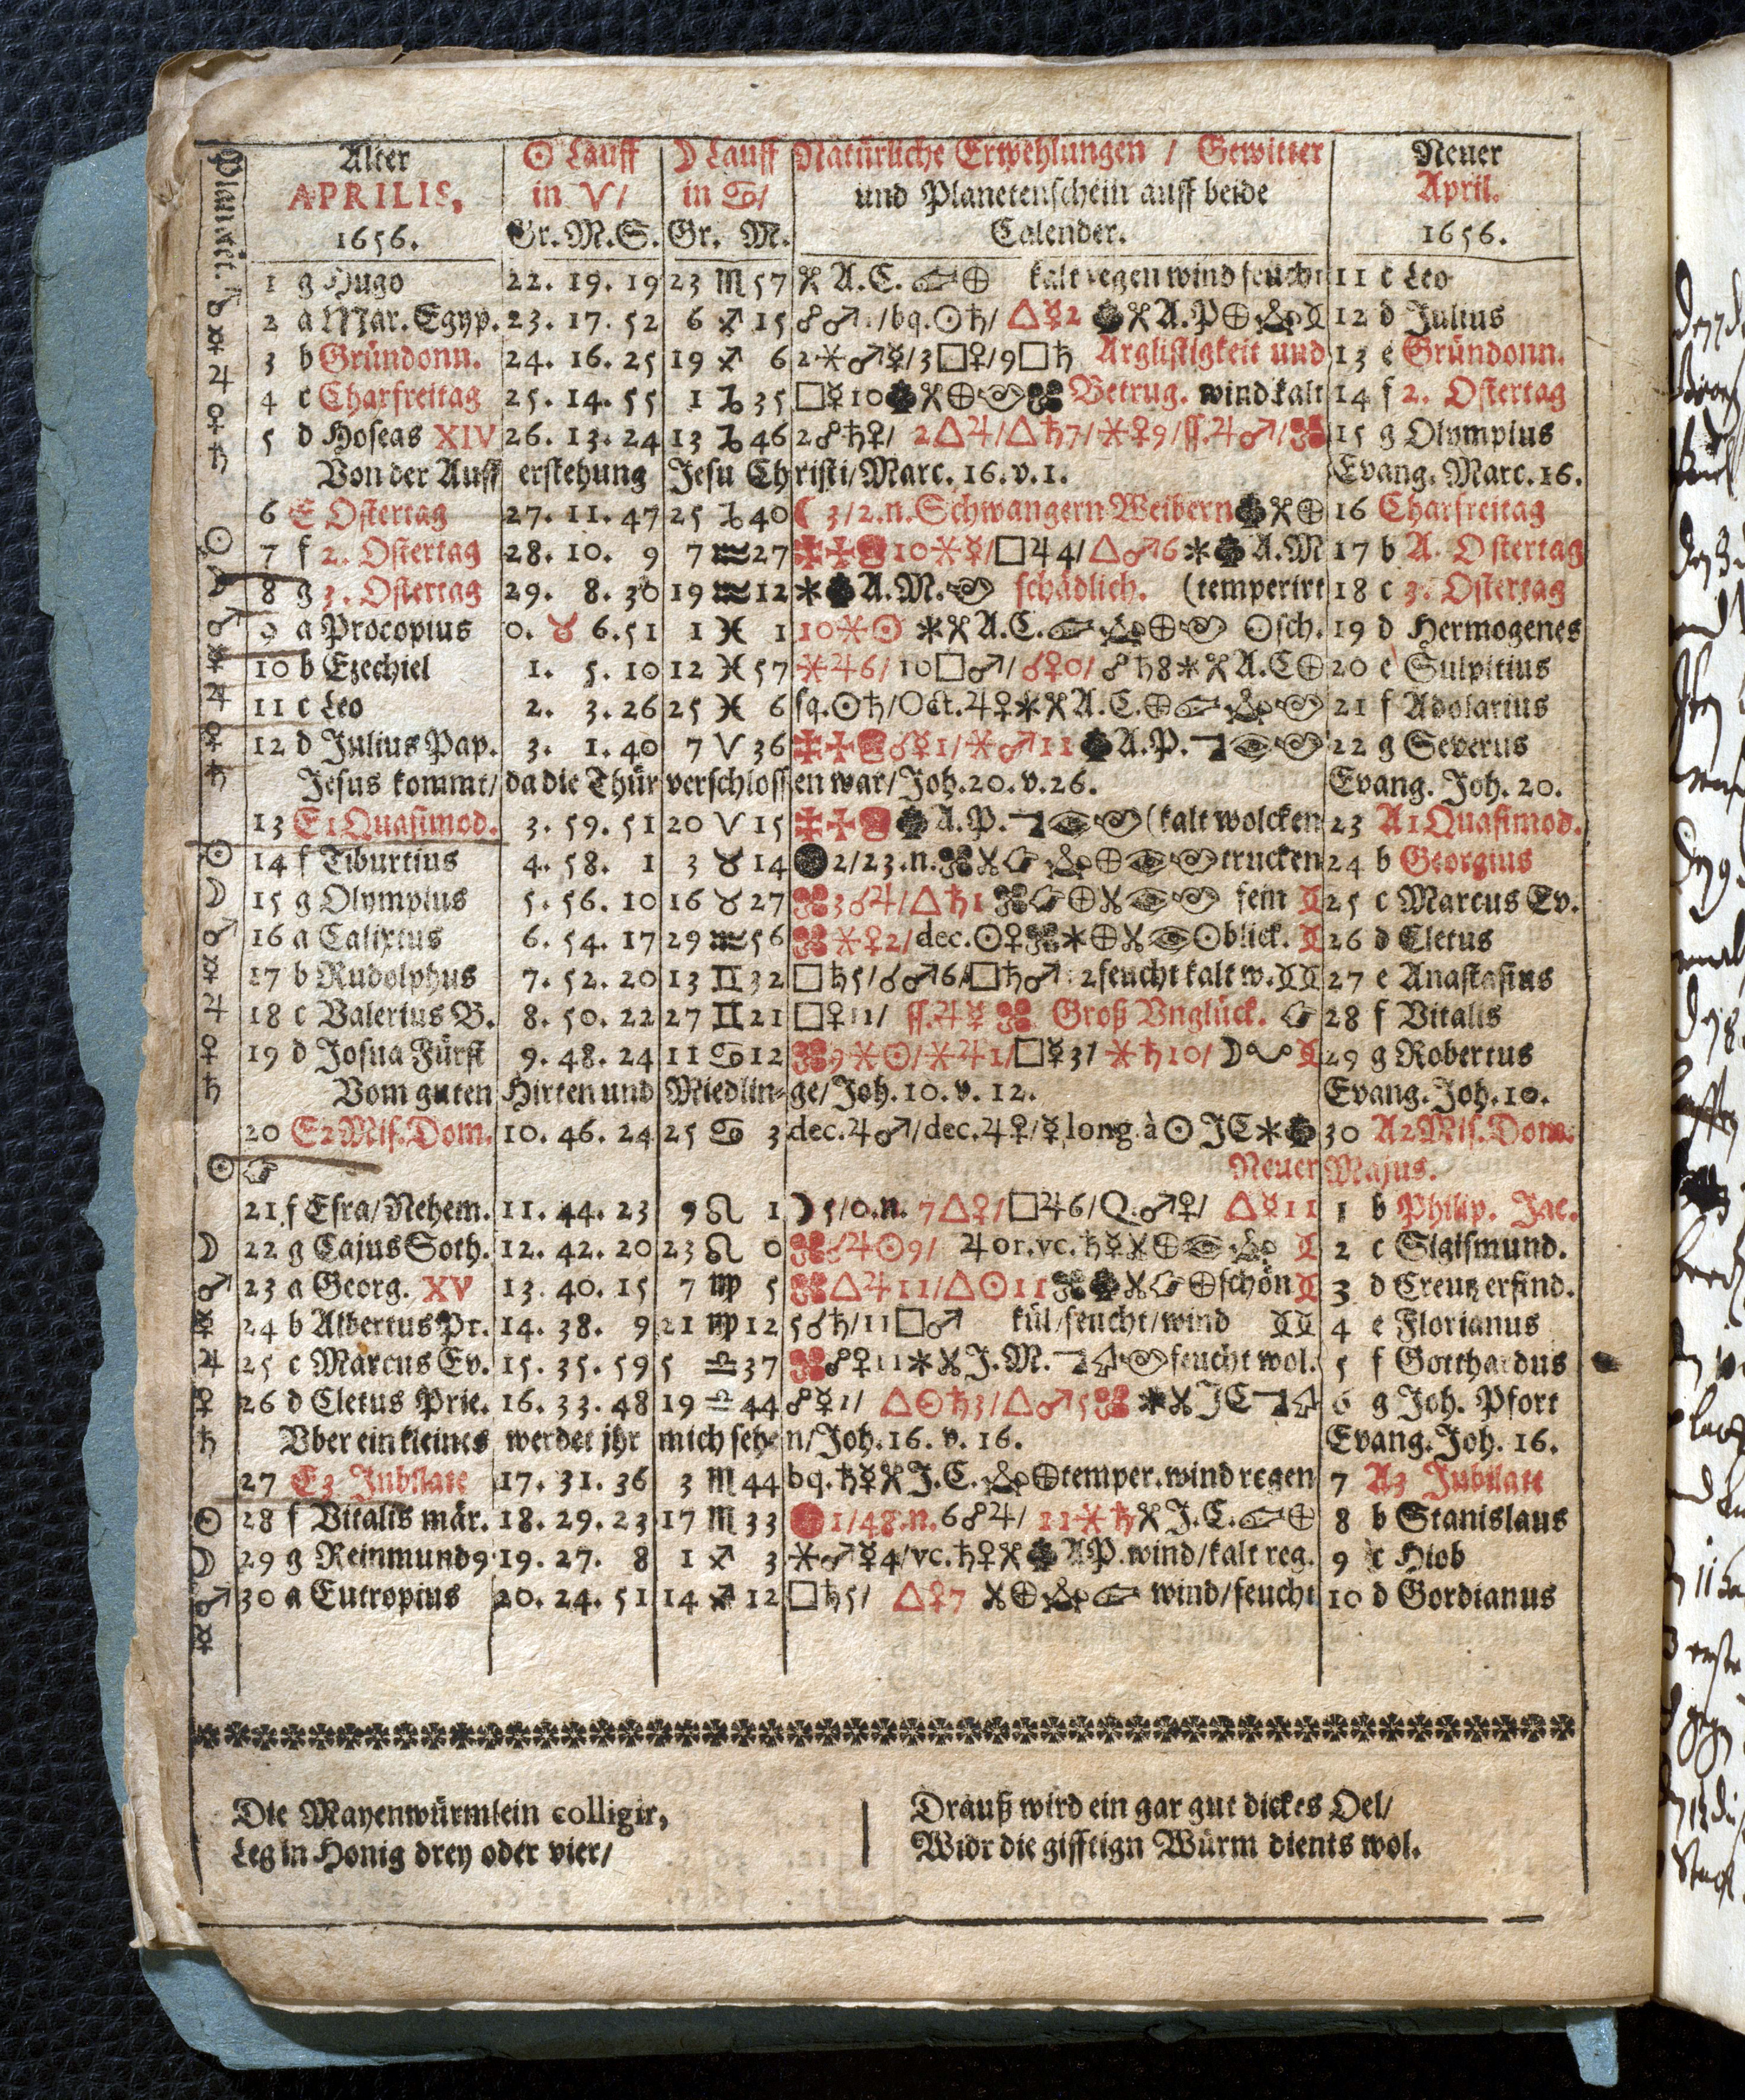 Planet.
Alter ☉ Lauff ☽ Lauff Natürliche Erwehlungen / Gewitter Neuer
APRILIS, in ♈/ in ♋/ und Planetenschein auff beide April.
1656. Gr. M. S. Gr. M. Calender. 1656.
1 g Hugo 22. 19. 19 23 ♏ 57 A.C. ⊕ kalt regen wind feucht 11 c Leo
2 a Mar. Egyp. 23. 17. 52 6 ♐ 15 ☍♂ /bq.☉♄/ △☿2 A.P⊕ 12 d Julius
3 b Gründonn. 24. 16. 25 19 ♐ 6 2⚹♂☿/3□♀/9□♄ Arglistigkeit und 13 e Gründonn.
4 c Charfreitag 25. 14. 55 1 ♑ 35 □☿10 ⊕ Betrug. wind kalt 14 f 2. Ostertag
5 d Hoseas XIV 26. 13. 24 13 ♑ 46 2☍♄♀/ 2△♃/△♄7/⚹♀9/ss.♃♂/ 15 g Olympius
Von der Aufferstehung Jesu Christi/Marc. 16. v. 1. Evang. Marc. 16.
6 E Ostertag 27. 11. 47 25 ♑ 40 ☾ 3/2.n. Schwangern Weibern ⊕ 16 Charfreitag
7 f 2. Ostertag 28. 10. 9 7 ♒ 27 10⚹☿/□♃4/△♂6 A.M 17 b A. Ostertag
8 g 3. Ostertag 29. 8. 30 19 ♒ 12 A.M. schädlich. (temperirt 18 c 3. Ostertag
9 a Procopius 0. ♉ 6. 51 1 ♓ 1 10⚹☉ A.C. ⊕ ☉sch. 19 d Hermogenes
10 b Ezechiel 1. 5. 10 12 ♓ 57 ⚹♃6/10□♂/☌♀0/☍♄8 A.C⊕ 20 e Sulpitius
11 c Leo 2. 3. 26 25 ♓ 6 sq.☉♄/Oct.♃♀ A.C.⊕ 21 f Adolarius
12 d Julius Pap. 3. 1. 40 7 ♈ 36 ☌☿1/⚹♂11 A.P. 22 g Severus
Jesus kommt/ da die Thür verschlossen war/Joh. 20. v. 26. Evang. Joh. 20.
13 E1 Quasimod. 3. 59. 51 20 ♈ 15 A.P. (kalt wolcken 23 A1 Quasimod.
14 f Tiburtius 4. 58. 1 3 ♉ 14 2/23.n. ⊕ trucken 24 b Georgius
15 g Olympius 5. 56. 10 16 ♉ 27 3☌♃/△♄1 ⊕ fein 25 c Marcus Ev.
16 a Calixtus 6. 54. 17 29 ♒ 56 ⚹♀2/dec.☉♀ ⊕ ☉blick. 26 d Cletus
17 b Rudolphus 7. 52. 20 13 ♊ 32 □♄5/☌♂6/□♄♂ 2 feucht kalt w. 27 e Anastasius
18 c Valerius B. 8. 50. 22 27 ♊ 21 □♀11/ ss.♃☿ Groß Vnglück. 28 f Vitalis
19 d Josua Fürst 9. 48. 24 11 ♋ 12 9⚹☉/⚹♃1/□☿3/ ⚹♄10/ ☽ 29 g Robertus
Vom guten Hirten und Miedlinge/Joh. 10. v. 12. Evang. Joh. 10.
20 E2 Mis. Dom. 10. 46. 24 25 ♋ 3 dec.♃♂/dec.♃♀/☿ long. à ☉ JC 30 A2 Mis. Dom.
Neuer Majus.
21 f Esra/Nehem. 11. 44. 23 9 ♌ 1 ☽5/0.n. 7△♀/□♃6/Q.♂♀/ △☿11 1 b Philip. Jac.
22 g Cajus Soth. 12. 42. 20 23 ♌ 0 ☌♃☉9/ ♃or.vc.♄☿ ⊕ 2 c Sigismund.
23 a Georg. XV 13. 40. 15 7 ♍ 5 △♃11/△☉11 ⊕schön 3 d Creutz erfind.
24 b Albertus Pr. 14. 38. 9 21 ♍ 12 5☌♄/11□♂ kül/feucht/wind 4 e Florianus
25 c Marcus Ev. 15. 35. 59 5 ♎ 37 ☍♀11 J.M. feucht wol. 5 f Gotthardus
26 d Cletus Prie. 16. 33. 48 19 ♎ 44 ☍☿1/ △☉♄3/△♂5 JC 6 g Joh. Pfort
Vber ein kleines werdet jhr mich sehen/Joh. 16. v. 16. Evang. Joh. 16.
27 E3 Jubilate 17. 31. 36 3 ♏ 44 bq.♄☿ J.C. ⊕temper. wind regen 7 A3 Jubilate
28 f Vitalis mär. 18. 29. 23 17 ♏ 33 1/48.n. 6☍♃/ 11⚹♄ J.C. ⊕ 8 b Stanislaus
29 g Reinmund9 19. 27. 8 1 ♐ 3 ⚹♂☿4/vc.♄♀ AP. wind/kalt reg. 9 c Hiob
30 a Eutropius 20. 24. 51 14 ♐ 12 □♄5/ △♀7 ⊕ wind/feucht 10 d Gordianus
Die Mayenwürmlein colligir,
Leg in Honig drey oder vier/
Drauß wird ein gar gut dickes Oel/
Widr die gifftign Würm dients wol.